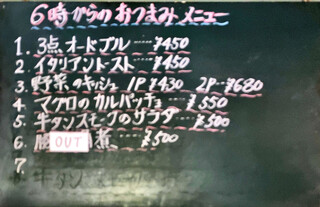 6時からのおつまみメニュー
1. 3点オードブル……¥450
2. イタリアントースト……¥450
3. 野菜のキッシュ 1P¥430 2P…¥680
4. マグロのカルパッチョ……¥550
5. 牛タンスモークのサラダ……¥500
6. OUT 煮……¥500
7.
牛タン